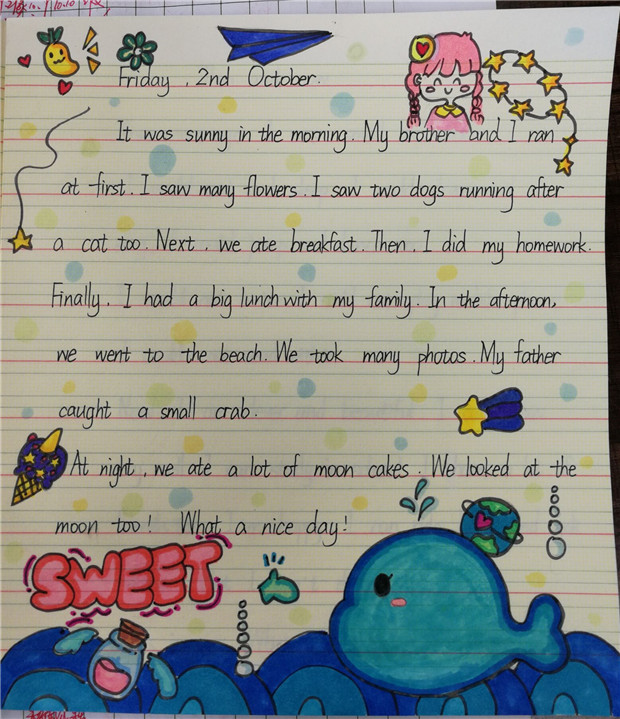 10.10
Friday, 2nd October.
It was sunny in the morning. My brother and I ran
at first. I saw many flowers. I saw two dogs running after
a cat too. Next, we ate breakfast. Then, I did my homework.
Finally, I had a big lunch with my family. In the afternoon,
we went to the beach. We took many photos. My father
caught a small crab.
At night, we ate a lot of moon cakes. We looked at the
moon too! What a nice day!
SWEET